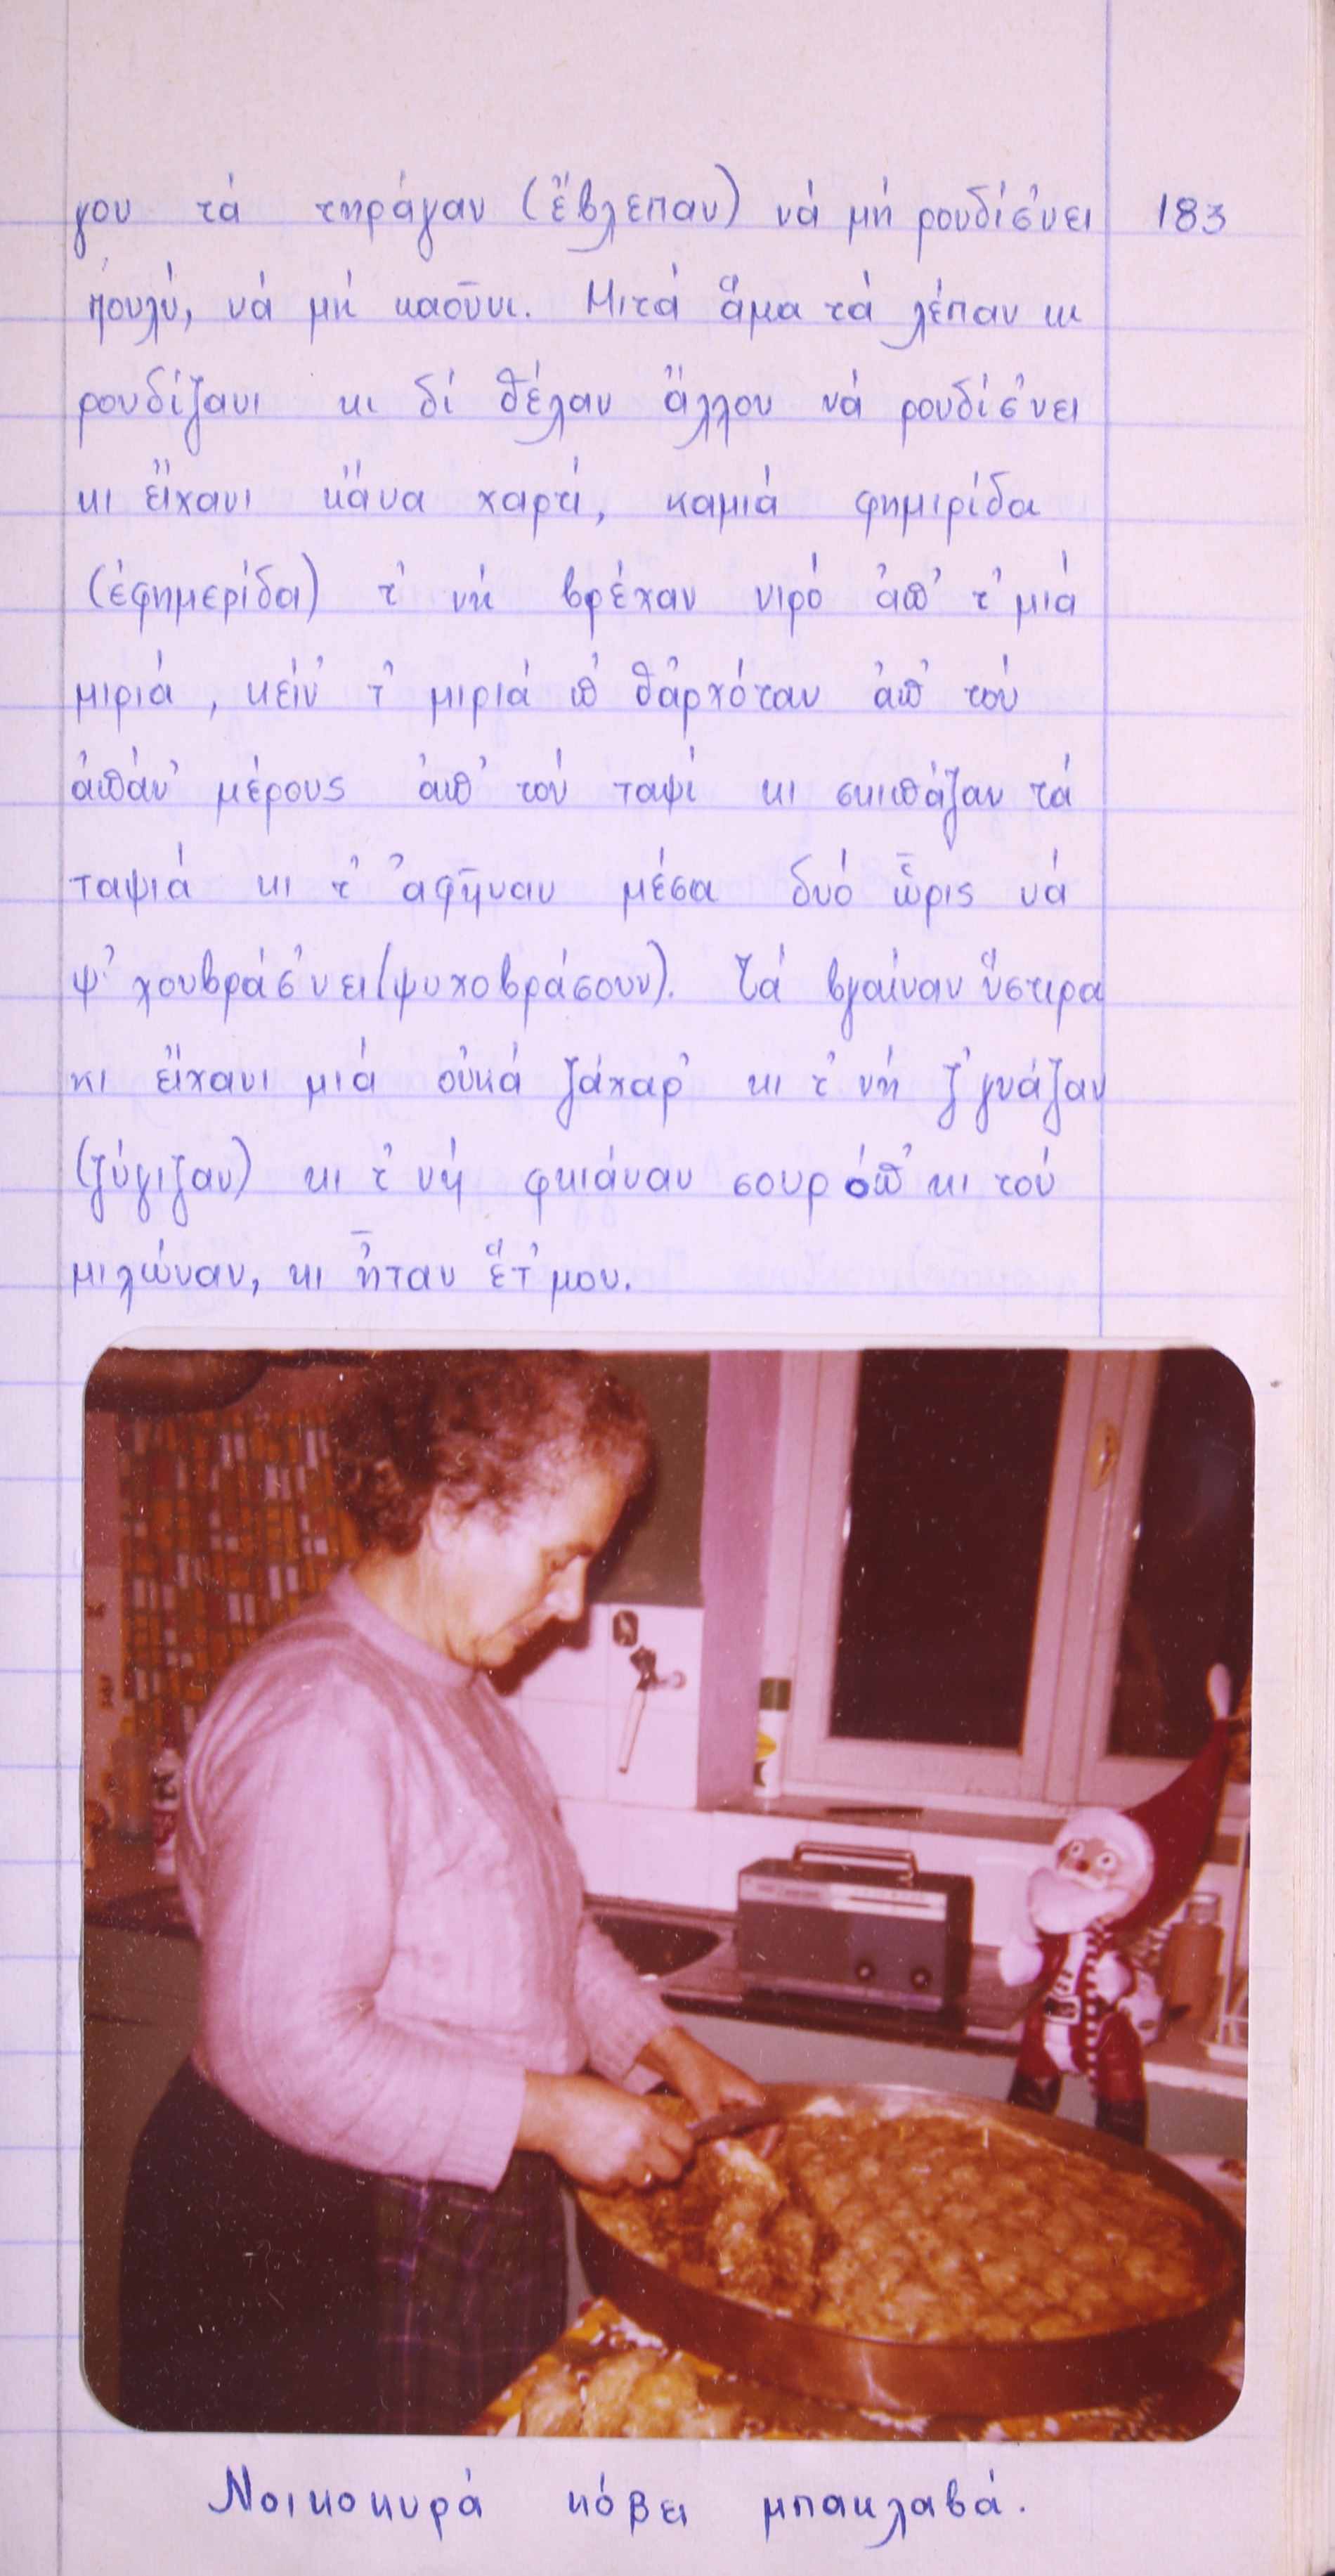 γου τά τηράγαν (ἔβλεπαν) νά μή ρουδίσ'νει 183
πουλύ, νά μή καοῦνι. Μιτά ἅμα τά λέπαν κι
ρουδίζανι κι δέ θέλαν ἄλλου νά ρουδίσ'νει
κι εἴχανι κἄνα χαρτί, καμιά φημιρίδα
(ἐφημερίδα) τ' νή βρέχαν νιρό ἀπ' τ' μιά
μιριά, κείν' τ' μιριά π' θἀρχόταν ἀπ' τού
ἀπάν' μέρους ἀπ' τού ταψί κι σκιπάζαν τά
ταψιά κι τ' ἀφῆναν μέσα δυό ὧρις νά
ψ' χουβράσ'νει (ψυχοβράσουν). Τά βγαίναν ὕστιρα
κι εἴχανι μιά οὐκά ζάχαρ' κι τ' νή ζ'γυάζαν
(ζύγιζαν) κι τ' νή φκιάναν σουρόπ' κι τού
μιλώναν, κι ἦταν ἕτ'μου.
Νοικοκυρά κόβει μπακλαβά.